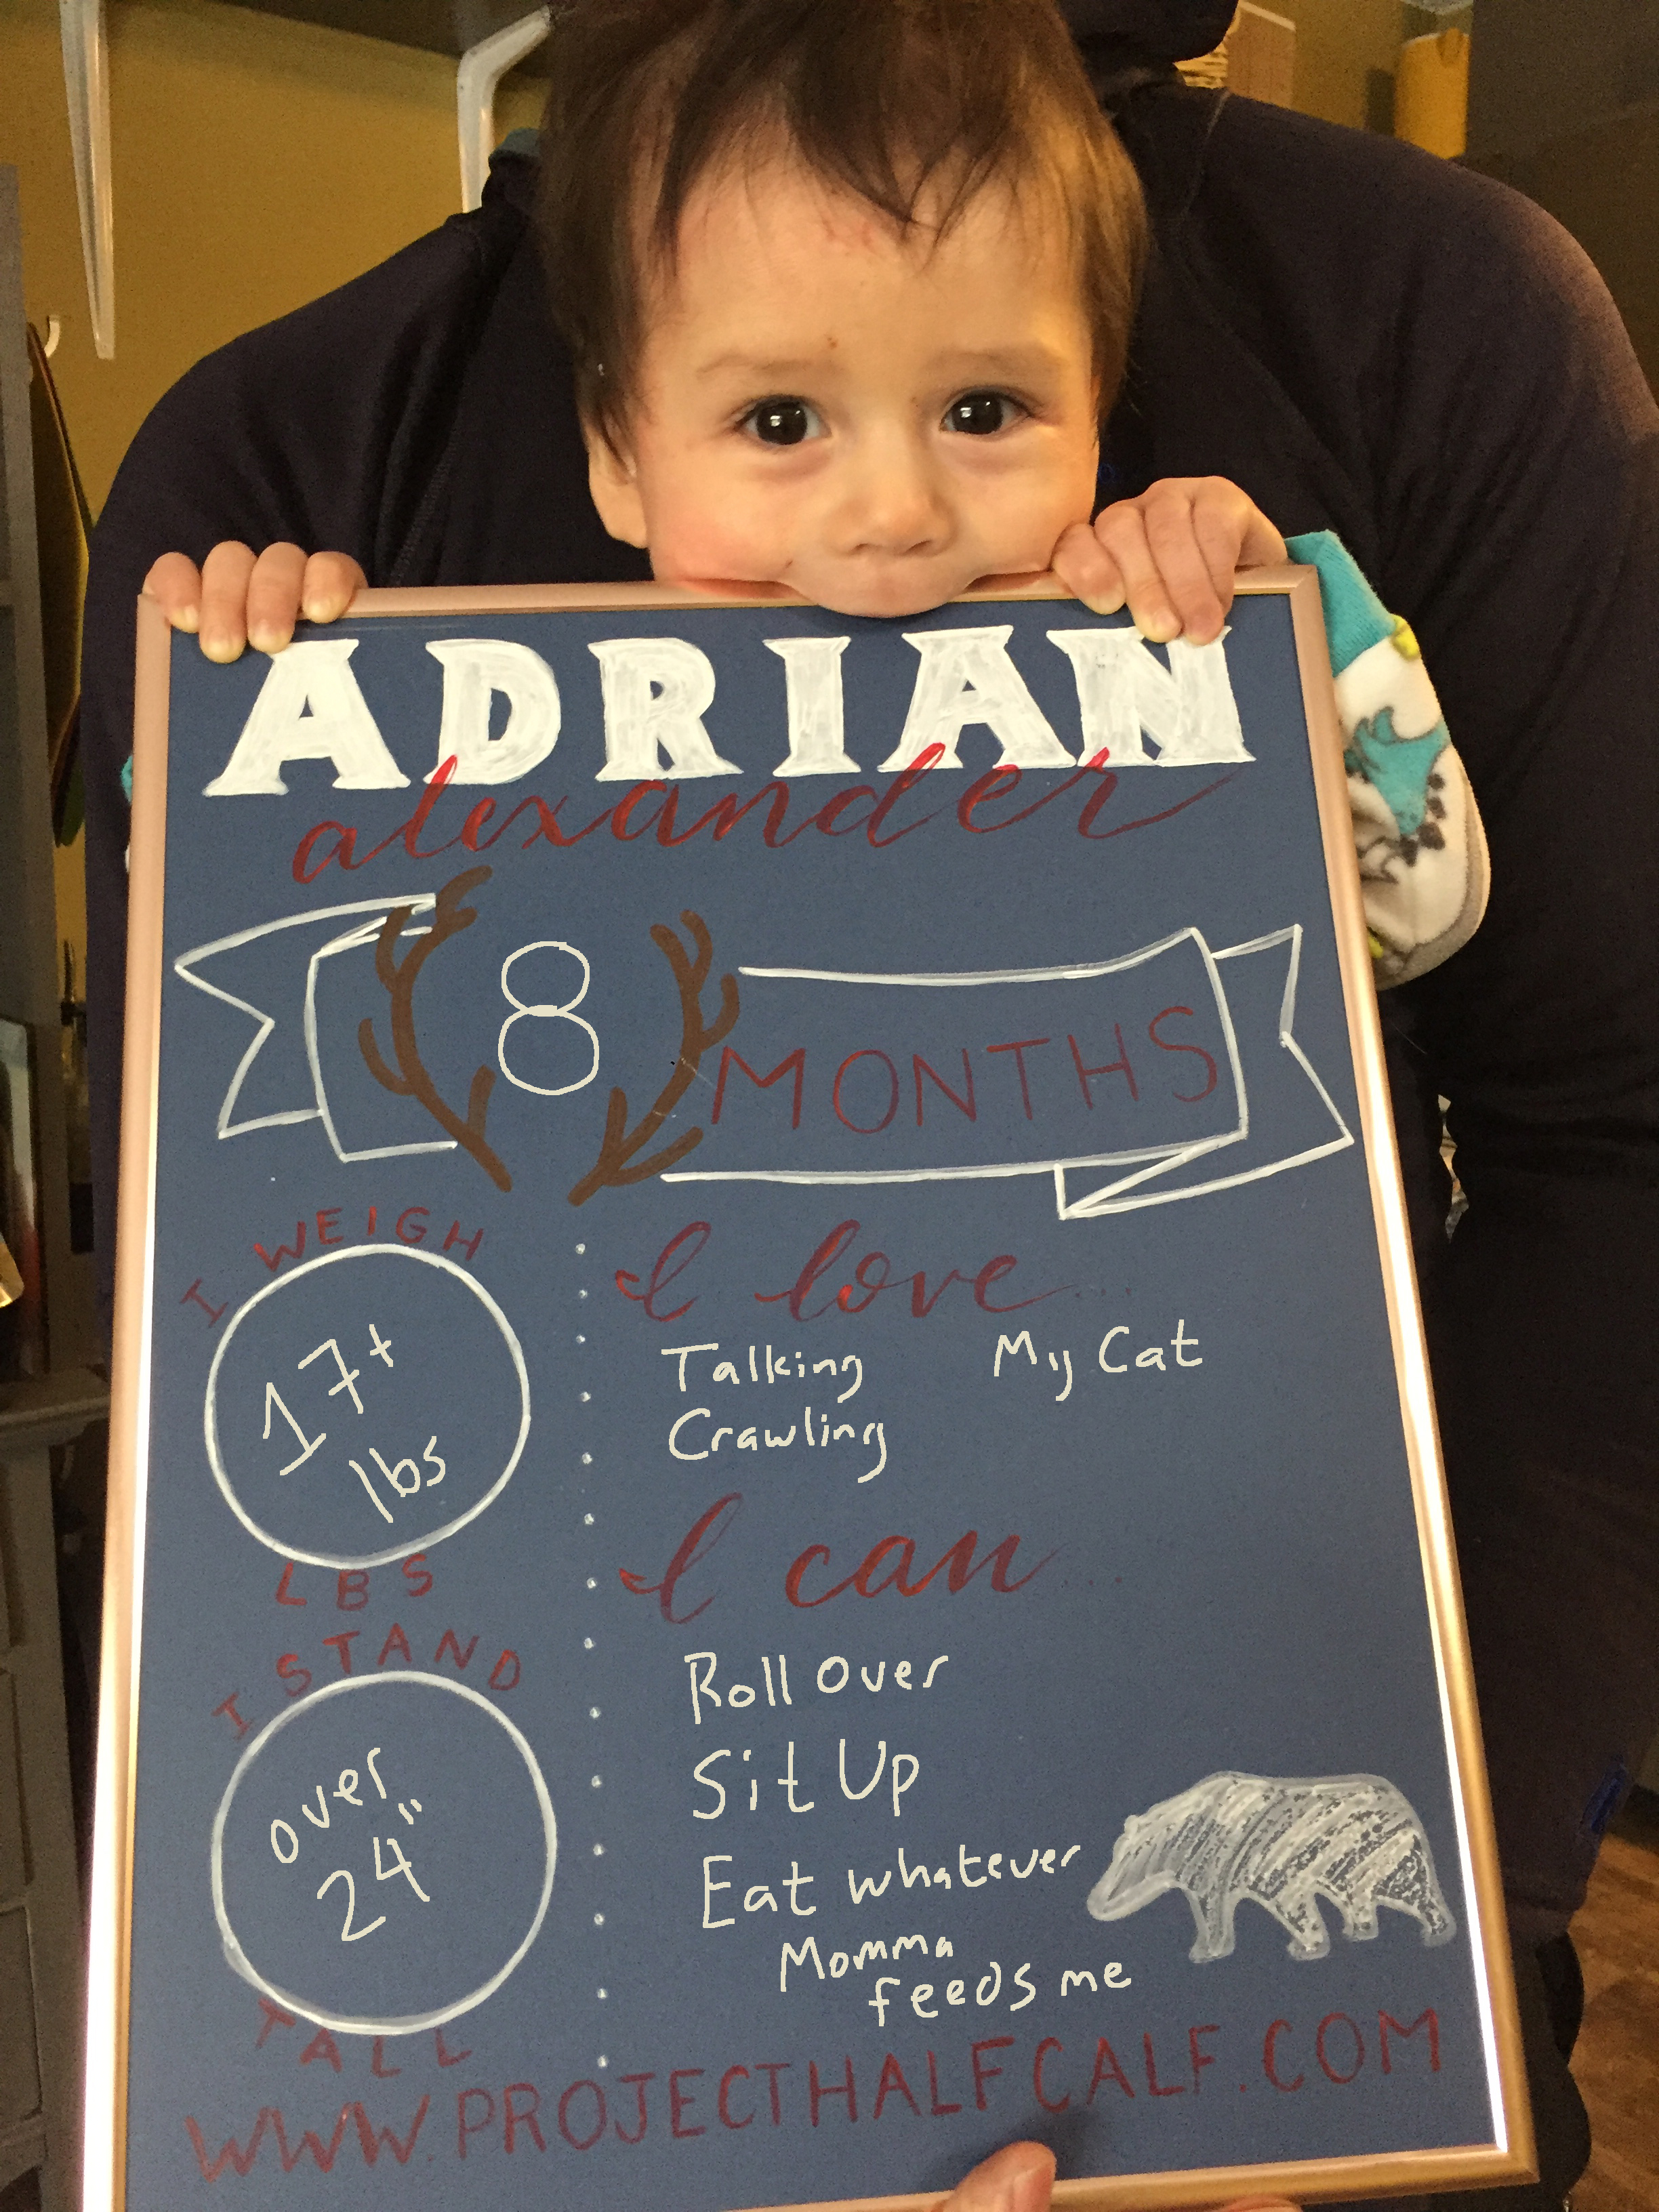 ADRIAN
alexander
8 MONTHS
I WEIGH
17+
lbs
LBS
I STAND
over
24"
TALL
I love...
Talking My Cat
Crawling
I can...
Roll Over
Sit Up
Eat whatever
Momma
feeds me
WWW.PROJECTHALFCALF.COM